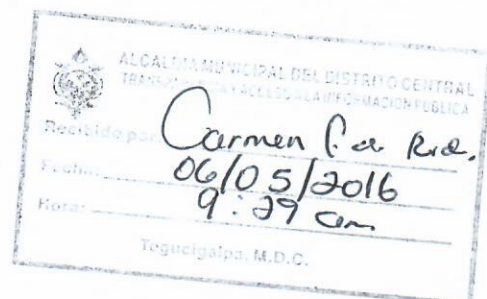 ALCALDIA MUNICIPAL DEL DISTRITO CENTRAL
TRANSPARENCIA Y ACCESO A LA INFORMACION PUBLICA
Recibido por: Carmen
Fecha: 06/05/2016
Hora: 9:29 am
Tegucigalpa, M.D.C.